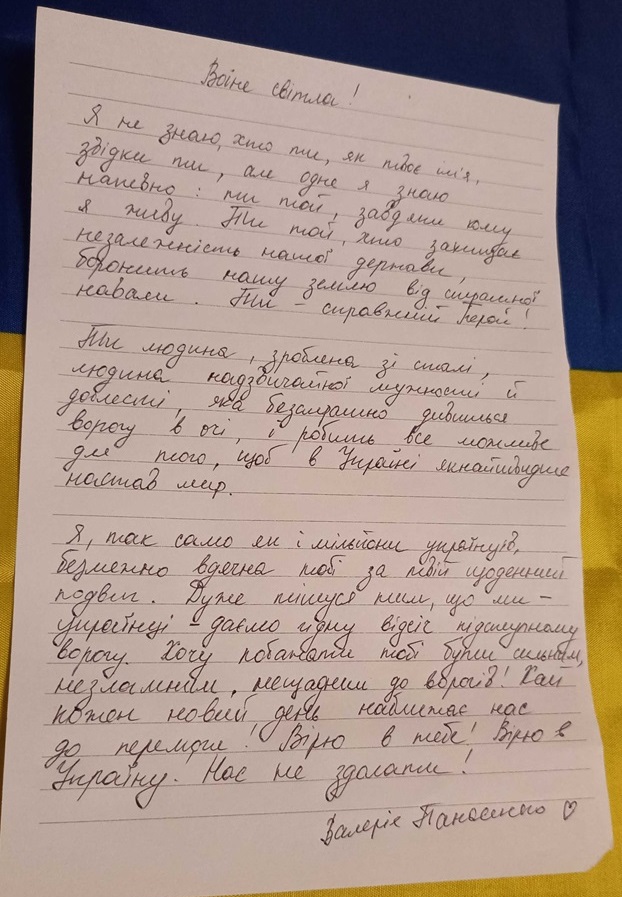 Воїне світла!
Я не знаю, хто ти, як твоє ім'я,
звідки ти, але одне я знаю
напевно: ти той, завдяки кому
я живу. Ти той, хто захищає
незалежність нашої держави,
боронить нашу землю від страшної
навали. Ти - справжній Герой!
Ти людина, зроблена зі сталі,
людина надзвичайної мужності й
доблесті, яка безстрашно дивиться
ворогу в очі, і робить все можливе
для того, щоб в Україні якнайшвидше
настав мир.
Я, так само як і мільйони українців,
безмежно вдячна тобі за твій щоденний
подвиг. Дуже пишуся тим, що ми -
українці - даємо гідну відсіч підступному
ворогу. Хочу побажати тобі бути сильним,
незламним, нещадним до ворогів! Хай
кожен новий день наближає нас
до перемоги! Вірю в тебе! Вірю в
Україну. Нас не здолати!
Валерія Панасенко ♡